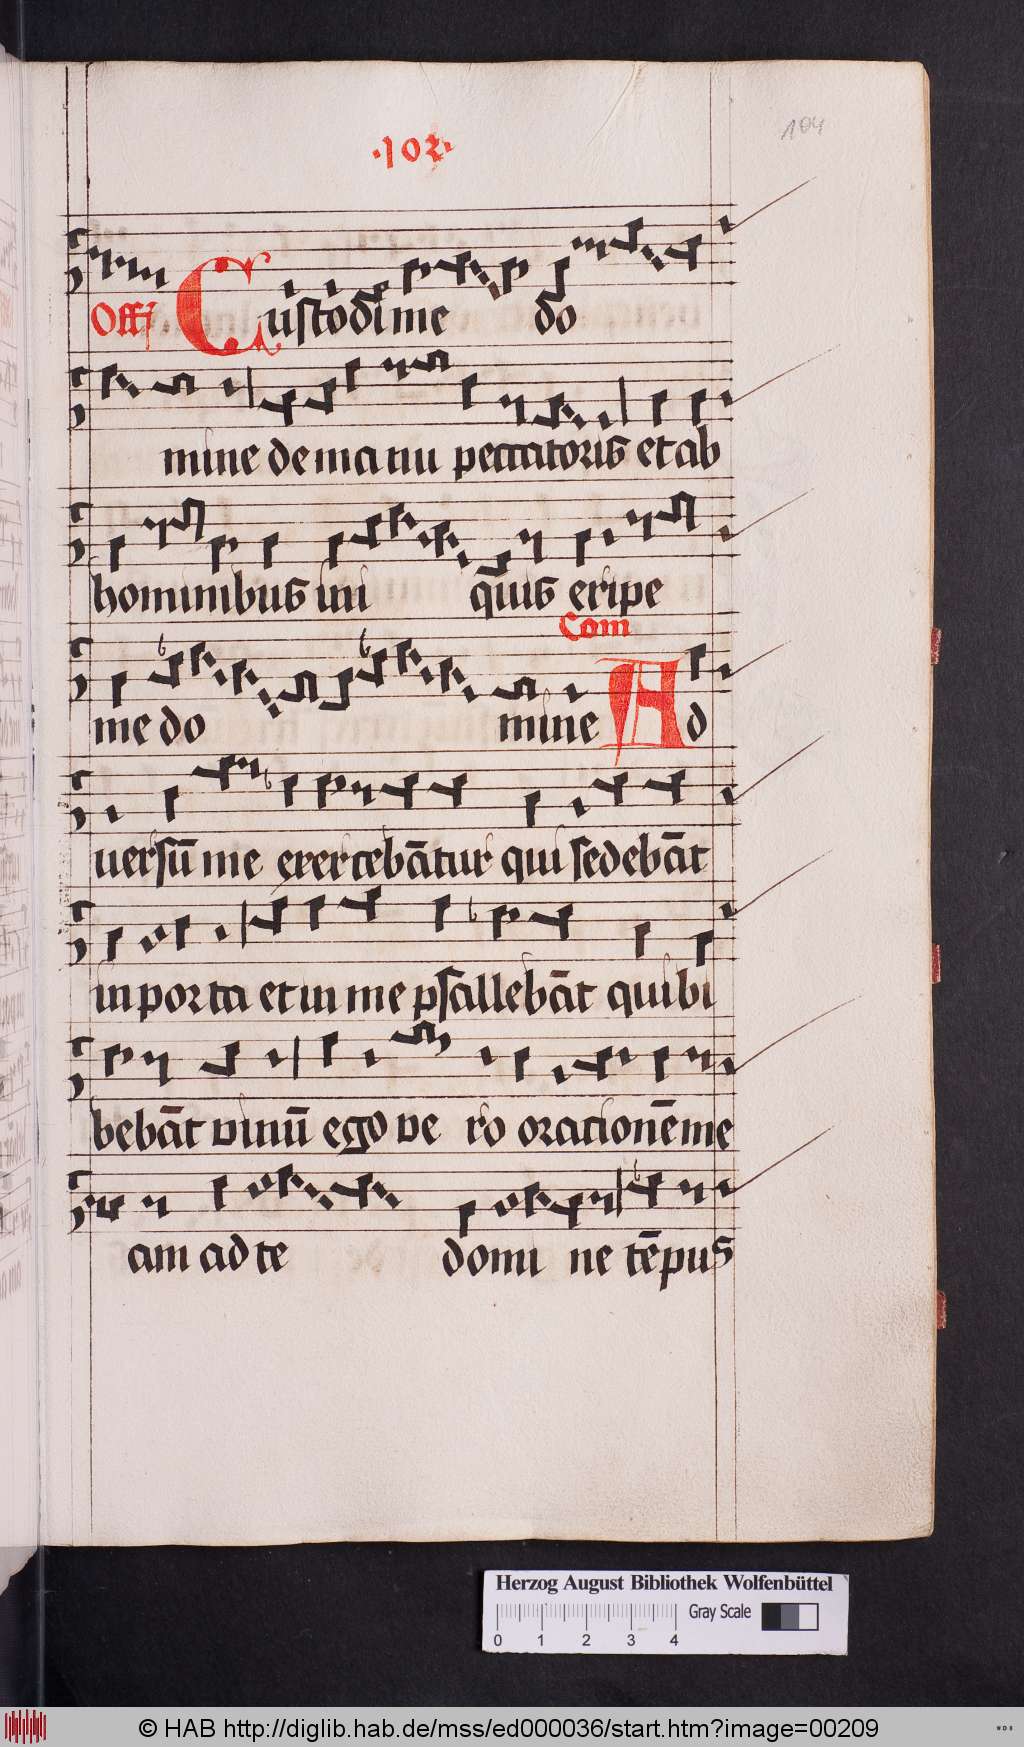 ·102·
104
Offi Custodi me do
mine de manu peccatoris et ab
hominibus ini quis eripe
Com
me do mine Ad
uersū me exercebāt​ur qui sedebāt
in porta et in me psallebāt qui bi
bebāt vinū ego ve ro orationē me
am ad te domi ne tēpus
Herzog August Bibliothek Wolfenbüttel
Gray Scale
0 1 2 3 4
© HAB http://diglib.hab.de/mss/ed000036/start.htm?image=00209